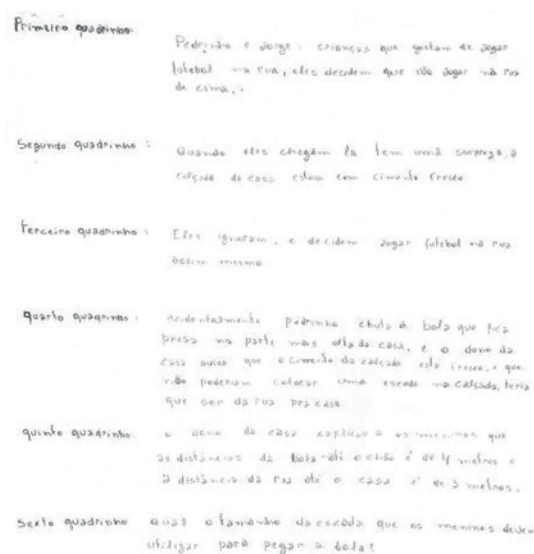 Primeiro quadrinho:
Pedrinho e Jorge: crianças que gostam de jogar
futebol na rua, eles decidem que vão jogar na rua
de cima,.
Segundo quadrinho:
Quando eles chegam la tem uma surpresa, a
calçada da casa estava com cimento fresco
terceiro quadrinho:
Eles ignoram, e decidem jogar futebol na rua
assim mesmo
quarto quadrinho:
Acidentalmente pedrinho chuta a bola que fica
presa na parte mais alta da casa, e o dono da
casa avisa que o cimento da calçada está fresco, e que
não poderiam colocar uma escada na calçada, teria
que ser da rua pra casa
quinto quadrinho:
o dono da casa explicou a os meninos que
as distâncias da bola até o chão é de 4 metros e
a distância da rua até o casa é de 3 metros.
Sexto quadrinho qual o tamanho da escada que os meninos devem
utilizar para pegar a bola?